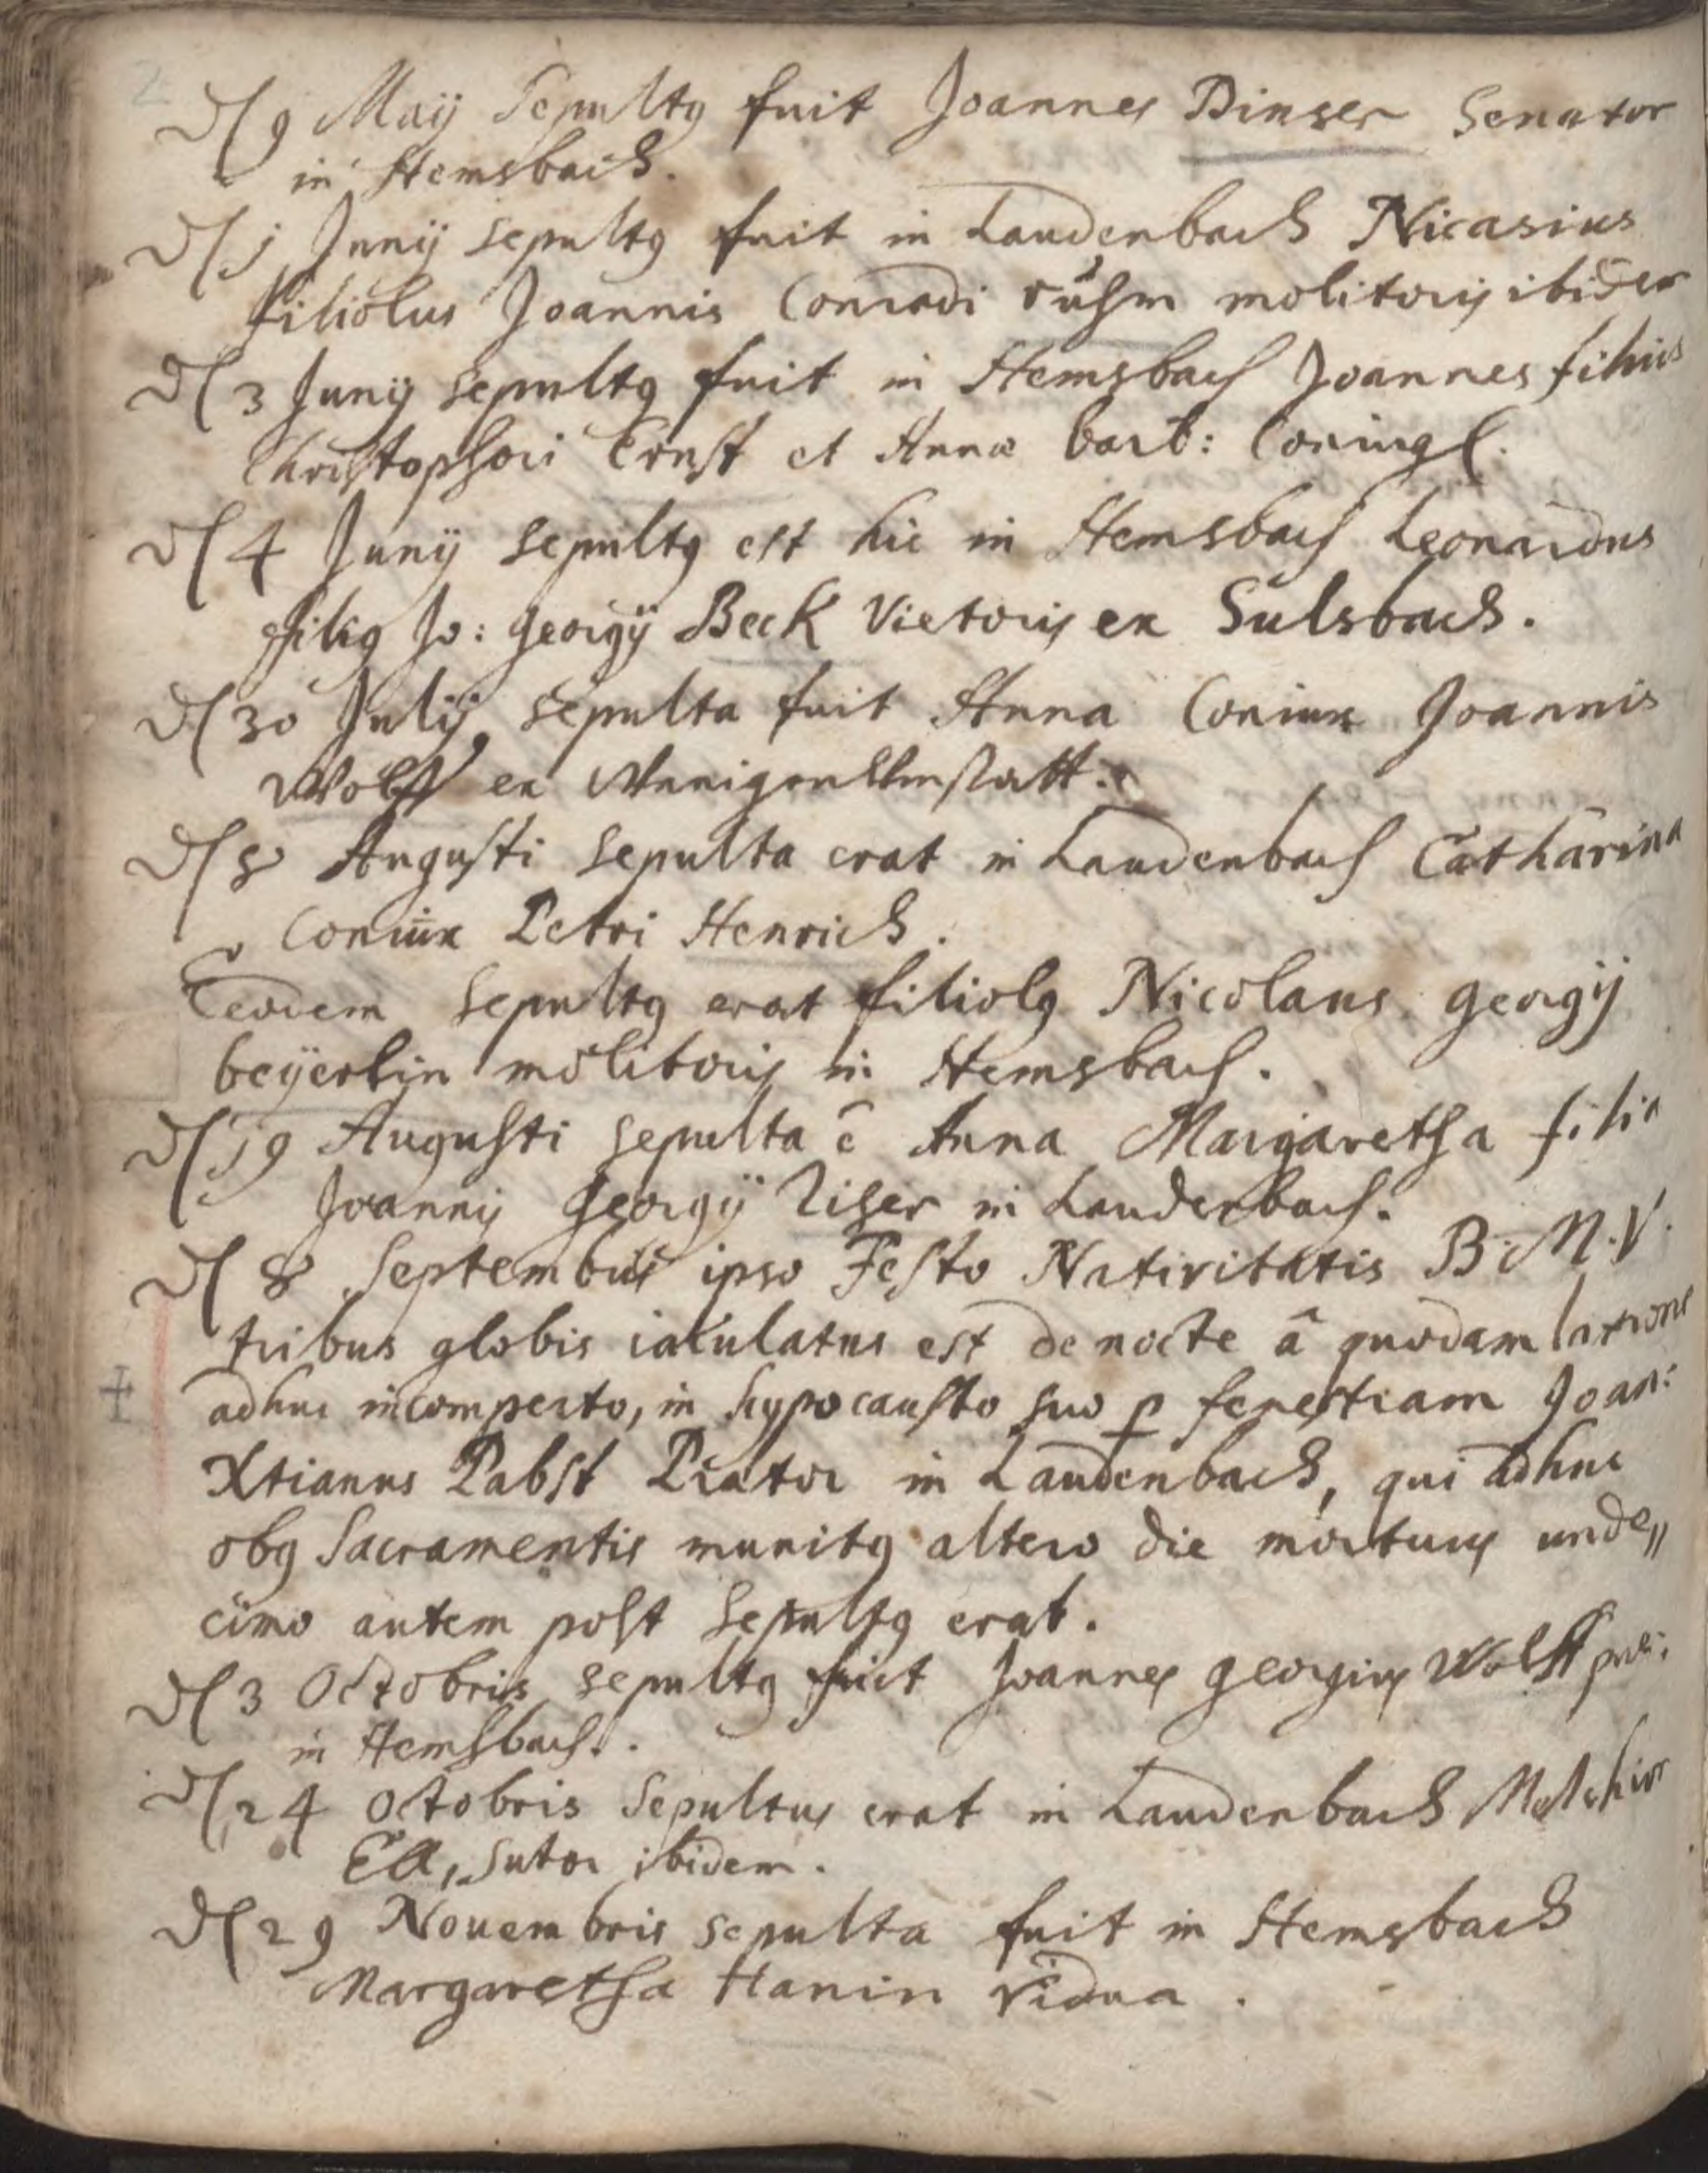 2
d 9 Maÿ Sepultg fuit Joannes Dinser Senator
in Hemsbach.
d 1 Junÿ sepultg fuit in Laudenbach Nicasius
filiolus Joannis Conradi rühm molitoris ibidem
d 3 Junÿ sepultg fuit in Hemsbach Joannes filius
Christophori Ernst et Annæ barb: Coniugl.
d 4 Junÿ sepultg est hic in Hemsbach Leonardus
filig Jo: georgÿ Beck Vietoris ex Sulsbach.
d 30 Julÿ, sepulta fuit Anna Coniux Joannis
Wolff ex
d 8 Augusti sepulta erat in Laudenbach Catharina
Coniux Petri Henrich.
eodem sepultg erat filiolg Nicolaus georgÿ
beÿerlin molitoris in Hemsbach.
d 19 Augusti sepulta ẽ Anna Margaretha filia
Joannis Georgÿ Ziser in Laudenbach.
d 8 Septembris ipso Festo Nativitatis B. M. V.
tribus globis iaculatus est de nocte â quodam latrone
adhuc incomperto, in hypocausto suo p fenestram Joan:
Xtianus Pabst Prætor in Laudenbach, qui adhuc
obg Sacramentis munitg altero die mortuus unde„
cimo autem post sepultg erat.
d 3 Octobris sepultg fuit Joannes georgius Wolff
in Hemsbach.
d 24 Octobris Sepultus erat in Laudenbach Melchior
Ell, sutor ibidem.
d 29 Nouembris sepulta fuit in Hemsbach
Margaretha Hanin vidua.